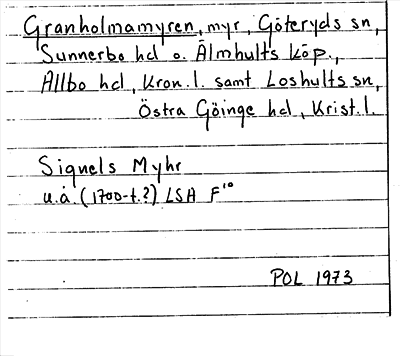 Granholmamyren, myr, Göteryds sn,
Sunnerbo hd o. Älmhults köp.,
Allbo hd, Kron.l. samt Loshults sn,
Östra Göinge hd, Krist.l.
Signels Myhr
u.å. (1700-t.?) LSA F¹⁰
POL 1973